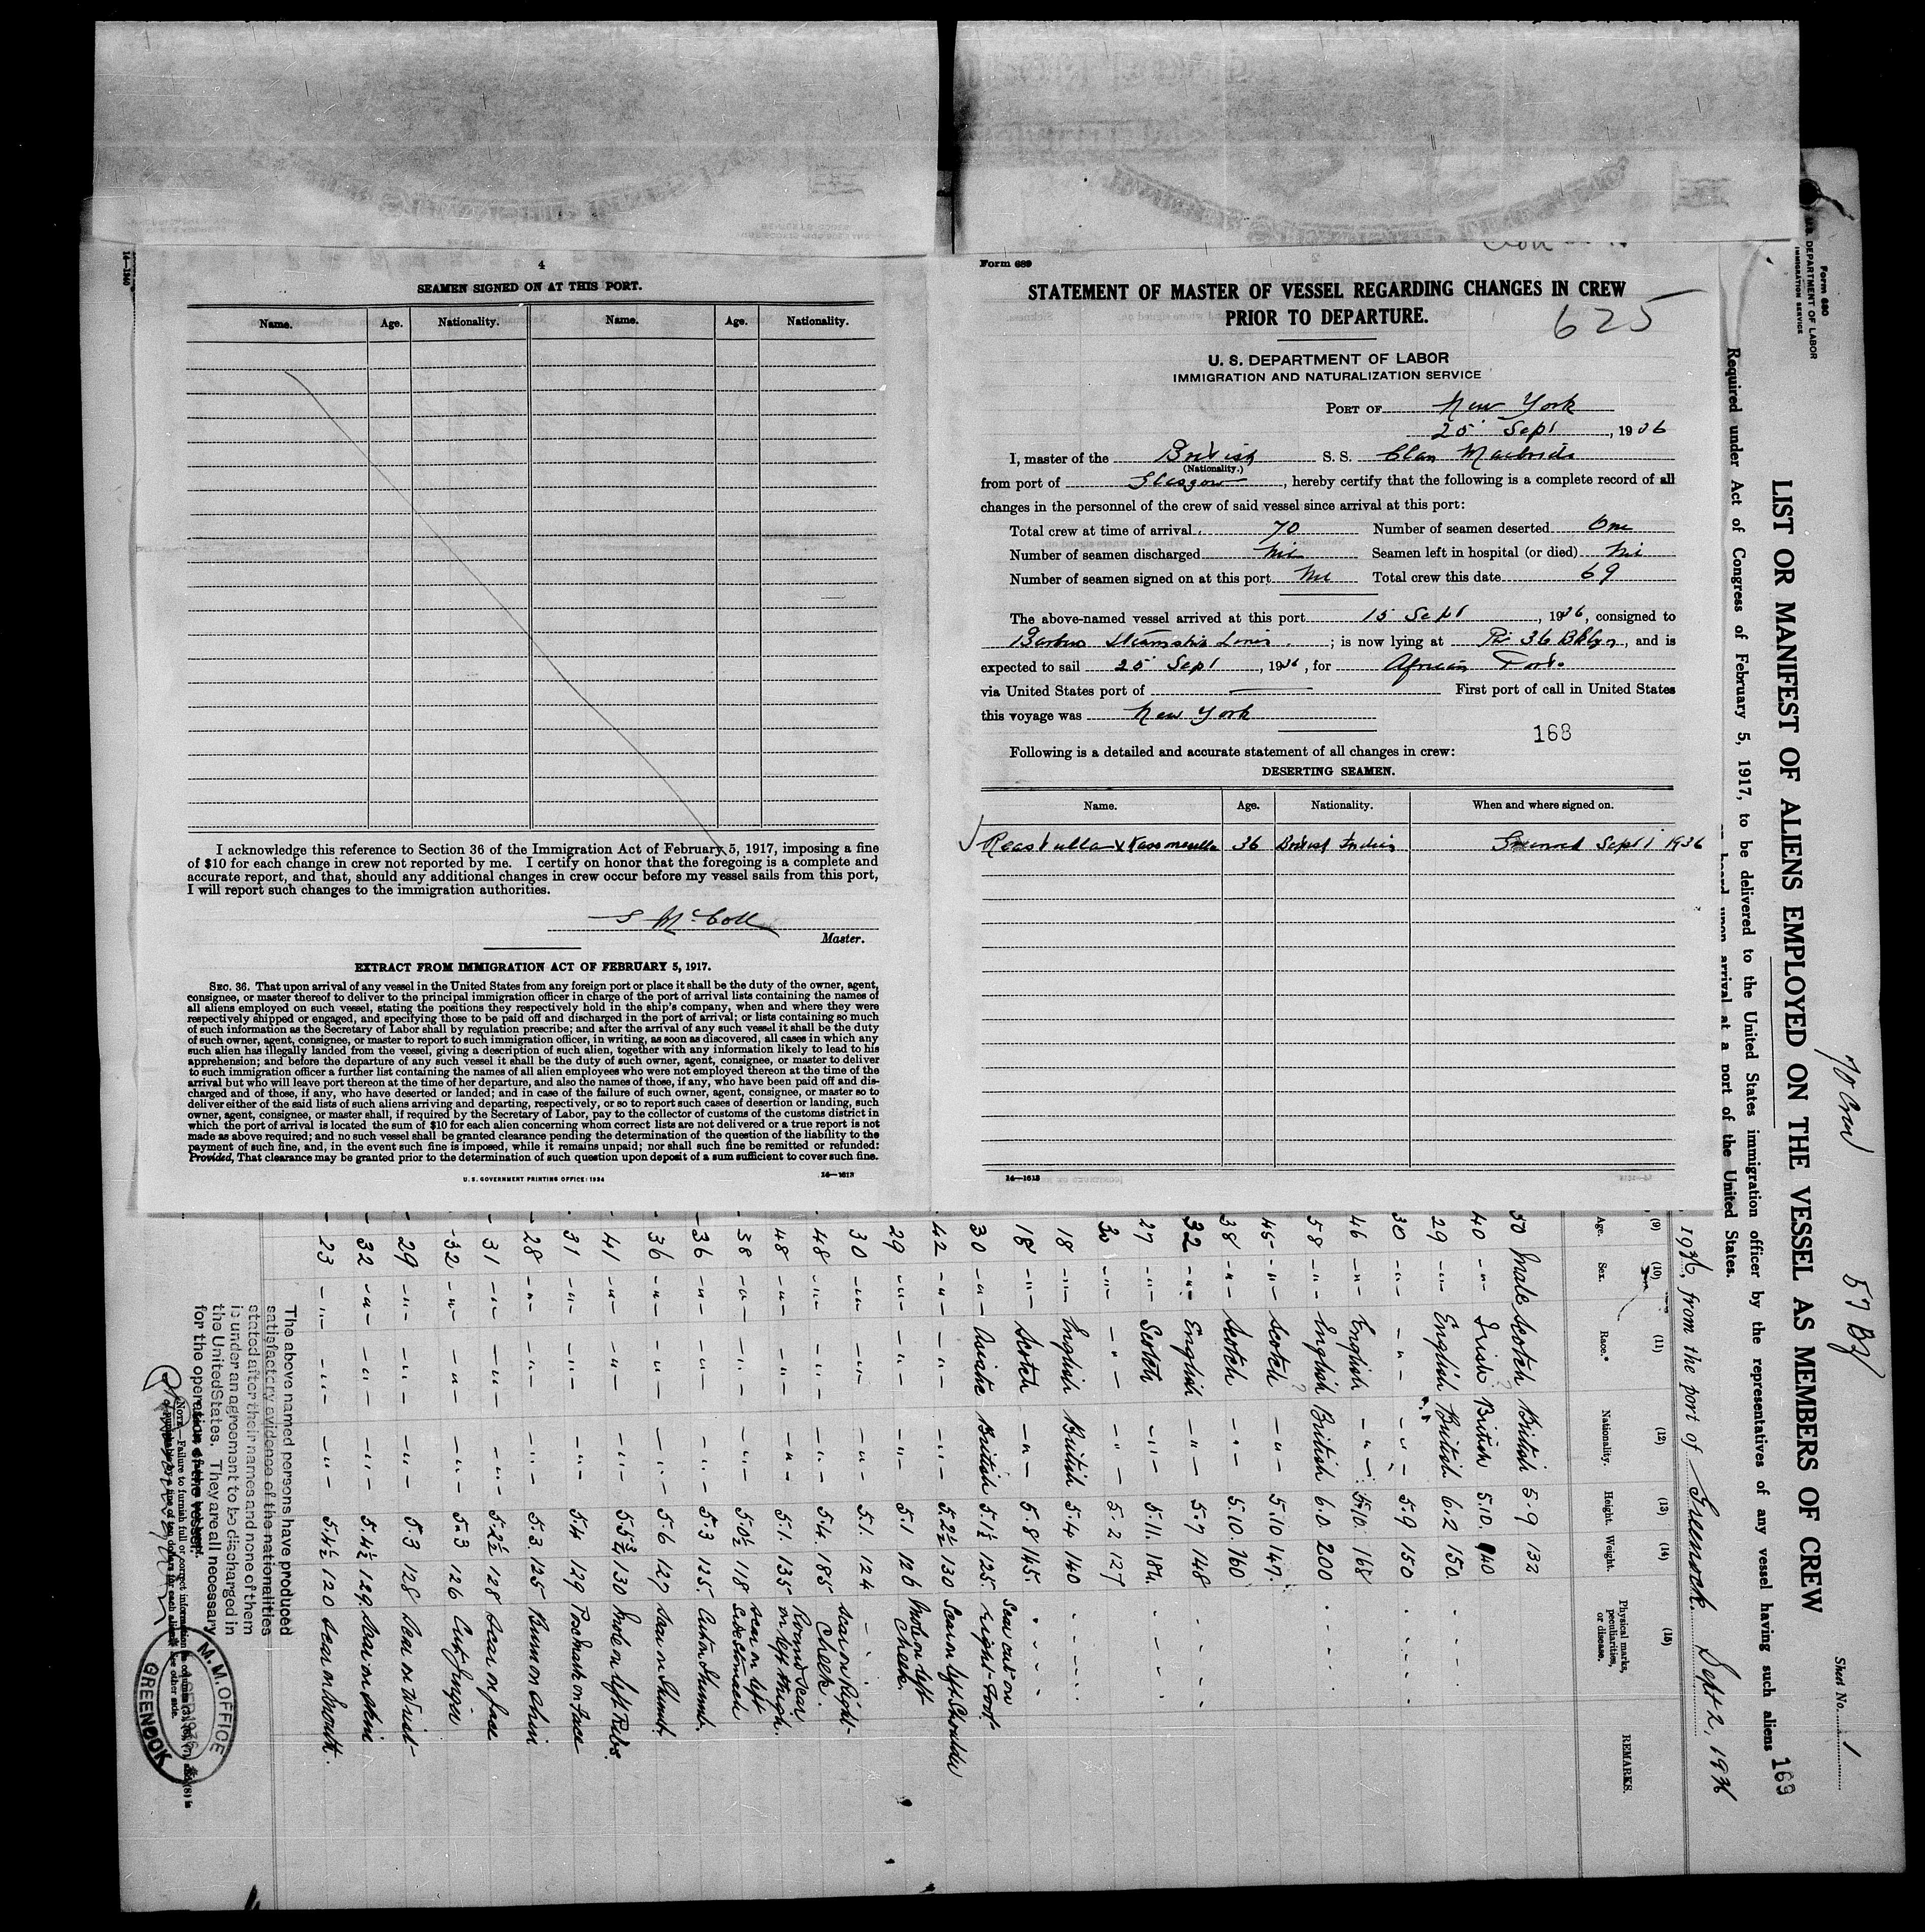 4
SEAMEN SIGNED ON AT THIS PORT.
Name. Age. Nationality. Name. Age. Nationality.
I acknowledge this reference to Section 36 of the Immigration Act of February 5, 1917, imposing a fine
of $10 for each change in crew not reported by me. I certify on honor that the foregoing is a complete and
accurate report, and that, should any additional changes in crew occur before my vessel sails from this port,
I will report such changes to the immigration authorities.
S McColl
Master.
EXTRACT FROM IMMIGRATION ACT OF FEBRUARY 5, 1917.
SEC. 36. That upon arrival of any vessel in the United States from any foreign port or place it shall be the duty of the owner, agent,
consignee, or master thereof to deliver to the principal immigration officer in charge of the port of arrival lists containing the names of
all aliens employed on such vessel, stating the positions they respectively hold in the ship's company, when and where they were
respectively shipped or engaged, and specifying those to be paid off and discharged in the port of arrival; or lists containing so much
of such information as the Secretary of Labor shall by regulation prescribe; and after the arrival of any such vessel it shall be the duty
of such owner, agent, consignee, or master to report to such immigration officer, in writing, as soon as discovered, all cases in which any
such alien has illegally landed from the vessel, giving a description of such alien, together with any information likely to lead to his
apprehension; and before the departure of any such vessel it shall be the duty of such owner, agent, consignee, or master to deliver
to such immigration officer a further list containing the names of all alien employees who were not employed thereon at the time of the
arrival but who will leave port thereon at the time of her departure, and also the names of those, if any, who have been paid off and dis-
charged and of those, if any, who have deserted or landed; and in case of the failure of such owner, agent, consignee, or master so to
deliver either of the said lists of such aliens arriving and departing, respectively, or so to report such cases of desertion or landing, such
owner, agent, consignee, or master shall, if required by the Secretary of Labor, pay to the collector of customs of the customs district in
which the port of arrival is located the sum of $10 for each alien concerning whom correct lists are not delivered or a true report is not
made as above required; and no such vessel shall be granted clearance pending the determination of the question of the liability to the
payment of such fine, and, in the event such fine is imposed, while it remains unpaid; nor shall such fine be remitted or refunded:
Provided, That clearance may be granted prior to the determination of such question upon deposit of a sum sufficient to cover such fine.
U. S. GOVERNMENT PRINTING OFFICE: 1934
14—1613
14—1940
Form 689
STATEMENT OF MASTER OF VESSEL REGARDING CHANGES IN CREW
PRIOR TO DEPARTURE.
625
U. S. DEPARTMENT OF LABOR
IMMIGRATION AND NATURALIZATION SERVICE
PORT OF New York
25 Sept, 1936
I, master of the British S. S. Clan Macbride
(Nationality.)
from port of Glasgow, hereby certify that the following is a complete record of all
changes in the personnel of the crew of said vessel since arrival at this port:
Total crew at time of arrival 70 Number of seamen deserted One
Number of seamen discharged Nil Seamen left in hospital (or died) Nil
Number of seamen signed on at this port Nil Total crew this date 69
The above-named vessel arrived at this port 15 Sept, 1936, consigned to
Barber Steamship Lines; is now lying at Pier 36 Bklyn, and is
expected to sail 25 Sept, 1936, for African Ports
via United States port of First port of call in United States
this voyage was New York
168
Following is a detailed and accurate statement of all changes in crew:
DESERTING SEAMEN.
Name. Age. Nationality. When and where signed on.
36 British Indian Greenock Sept 1 1936
14—1613
Form 680
U.S. DEPARTMENT OF LABOR
IMMIGRATION SERVICE
70 Crew
Sheet No. 1
LIST OR MANIFEST OF ALIENS EMPLOYED ON THE VESSEL AS MEMBERS OF CREW
169
Required under Act of Congress of February 5, 1917, to be delivered to the United States immigration officer by the representatives of any vessel having such aliens
on board upon arrival at a port of the United States.
1936, from the port of Greenock. Sept 2, 1936
(9) (10) (11) (12) (13) (14) (15)
Age. Sex. Race.* Nationality. Height. Weight. Physical marks, peculiarities, or disease. REMARKS.
50 Male Scotch British 5.9 132
40 -"- Irish British 5.10. 140
29 -"- English British 6.2 150.
30 -"- -"- -"- 5.9 150
46 -"- English -"- 5.10. 168
58 -"- English British 6.0. 200
45 -"- Scotch -"- 5.10 147.
38 -"- Scotch -"- 5.10. 160
32 -"- English -"- 5.7 148
27 -"- Scotch -"- 5.11. 184.
30 -"- -"- -"- 5.2 127
18 -"- English British 5.4 140
18 -"- Scotch -"- 5.8 145.
30 -"- Asiatic British 5.1½ 125. Scar cut on right foot.
42 -"- -"- -"- 5.2½ 130 Scar on left Shoulder
29 -"- -"- -"- 5.1 126 Mole on left Cheek.
30 -"- -"- -"- 5.1. 124 Scar on Right
48 -"- -"- -"- 5.4. 185 Cheek.
48 -"- -"- -"- 5.1. 135 Round scar on left thigh.
38 -"- -"- -"- 5.0½ 118 Scar on left Side Stomach
36 -"- -"- -"- 5.3 125. Cut on thumb.
36 -"- -"- -"- 5.6 127 Scar on thumb.
41 -"- -"- -"- 5.5¾ 130 Mole on left Ribs
31 -"- -"- -"- 5.4 129 Pockmark on Face
28 -"- -"- -"- 5.3 125 Burn on shin
31 -"- -"- -"- 5.2½ 128 Scar on face
32 -"- -"- -"- 5.3 126 Cut finger
29 -"- -"- -"- 5.3 128 Scar on Wrist
32 -"- -"- -"- 5.4½ 129 Scar on shin
23 -"- -"- -"- 5.4½ 120 Scar on Mouth.
The above named persons have produced
satisfactory evidence of the nationalities
stated after their names and none of them
is under an agreement to be discharged in
the United States. They are all necessary
for the operation of the vessel.
M. M. OFFICE
GREENOCK